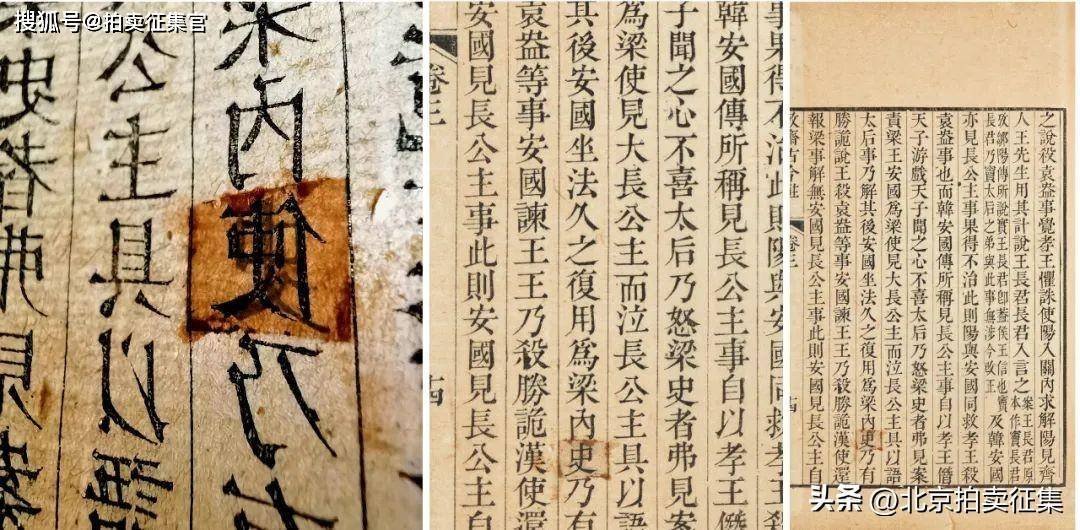 搜狐号@拍卖征集官
史者弗見案
公主具以語
梁內使乃有
事果得不治此則陽與安國同救孝王
韓安國傳所稱見長公主事自以孝王僭
子聞之心不喜太后乃怒梁史者弗見案
爲梁使見大長公主而泣長公主具以語
其後安國坐法久之復用爲梁內史乃有
袁盎等事安國諫王王乃殺勝詭漢使還
安國見長公主事此則安國見長公主自
卷三 十四
之說殺袁盎事覺孝王懼誅使陽入關內求解陽見齊
人王先生用其計說王長君長君入言之案王長君原本作竇長君
攷鄒陽傳所說實王長君卽蓋侯王信也竇長君乃竇太后之弟與此事無涉今改正及韓安國
亦見長公主事果得不治此則陽與安國同救孝王殺
袁盎事也而韓安國傳所稱見長公主事自以孝王僭
天子游戲天子聞之心不喜太后乃怒梁史者弗見案
責梁王安國爲梁使見大長公主而泣長公主具以語
太后事乃解其後安國坐法久之復用爲梁內史乃有
勝詭說王殺袁盎等事安國諫王王乃殺勝詭漢使還
報梁事解無安國見長公主事此則安國見長公主自
敬齋古今黈 卷三 十四
头条 @北京拍卖征集